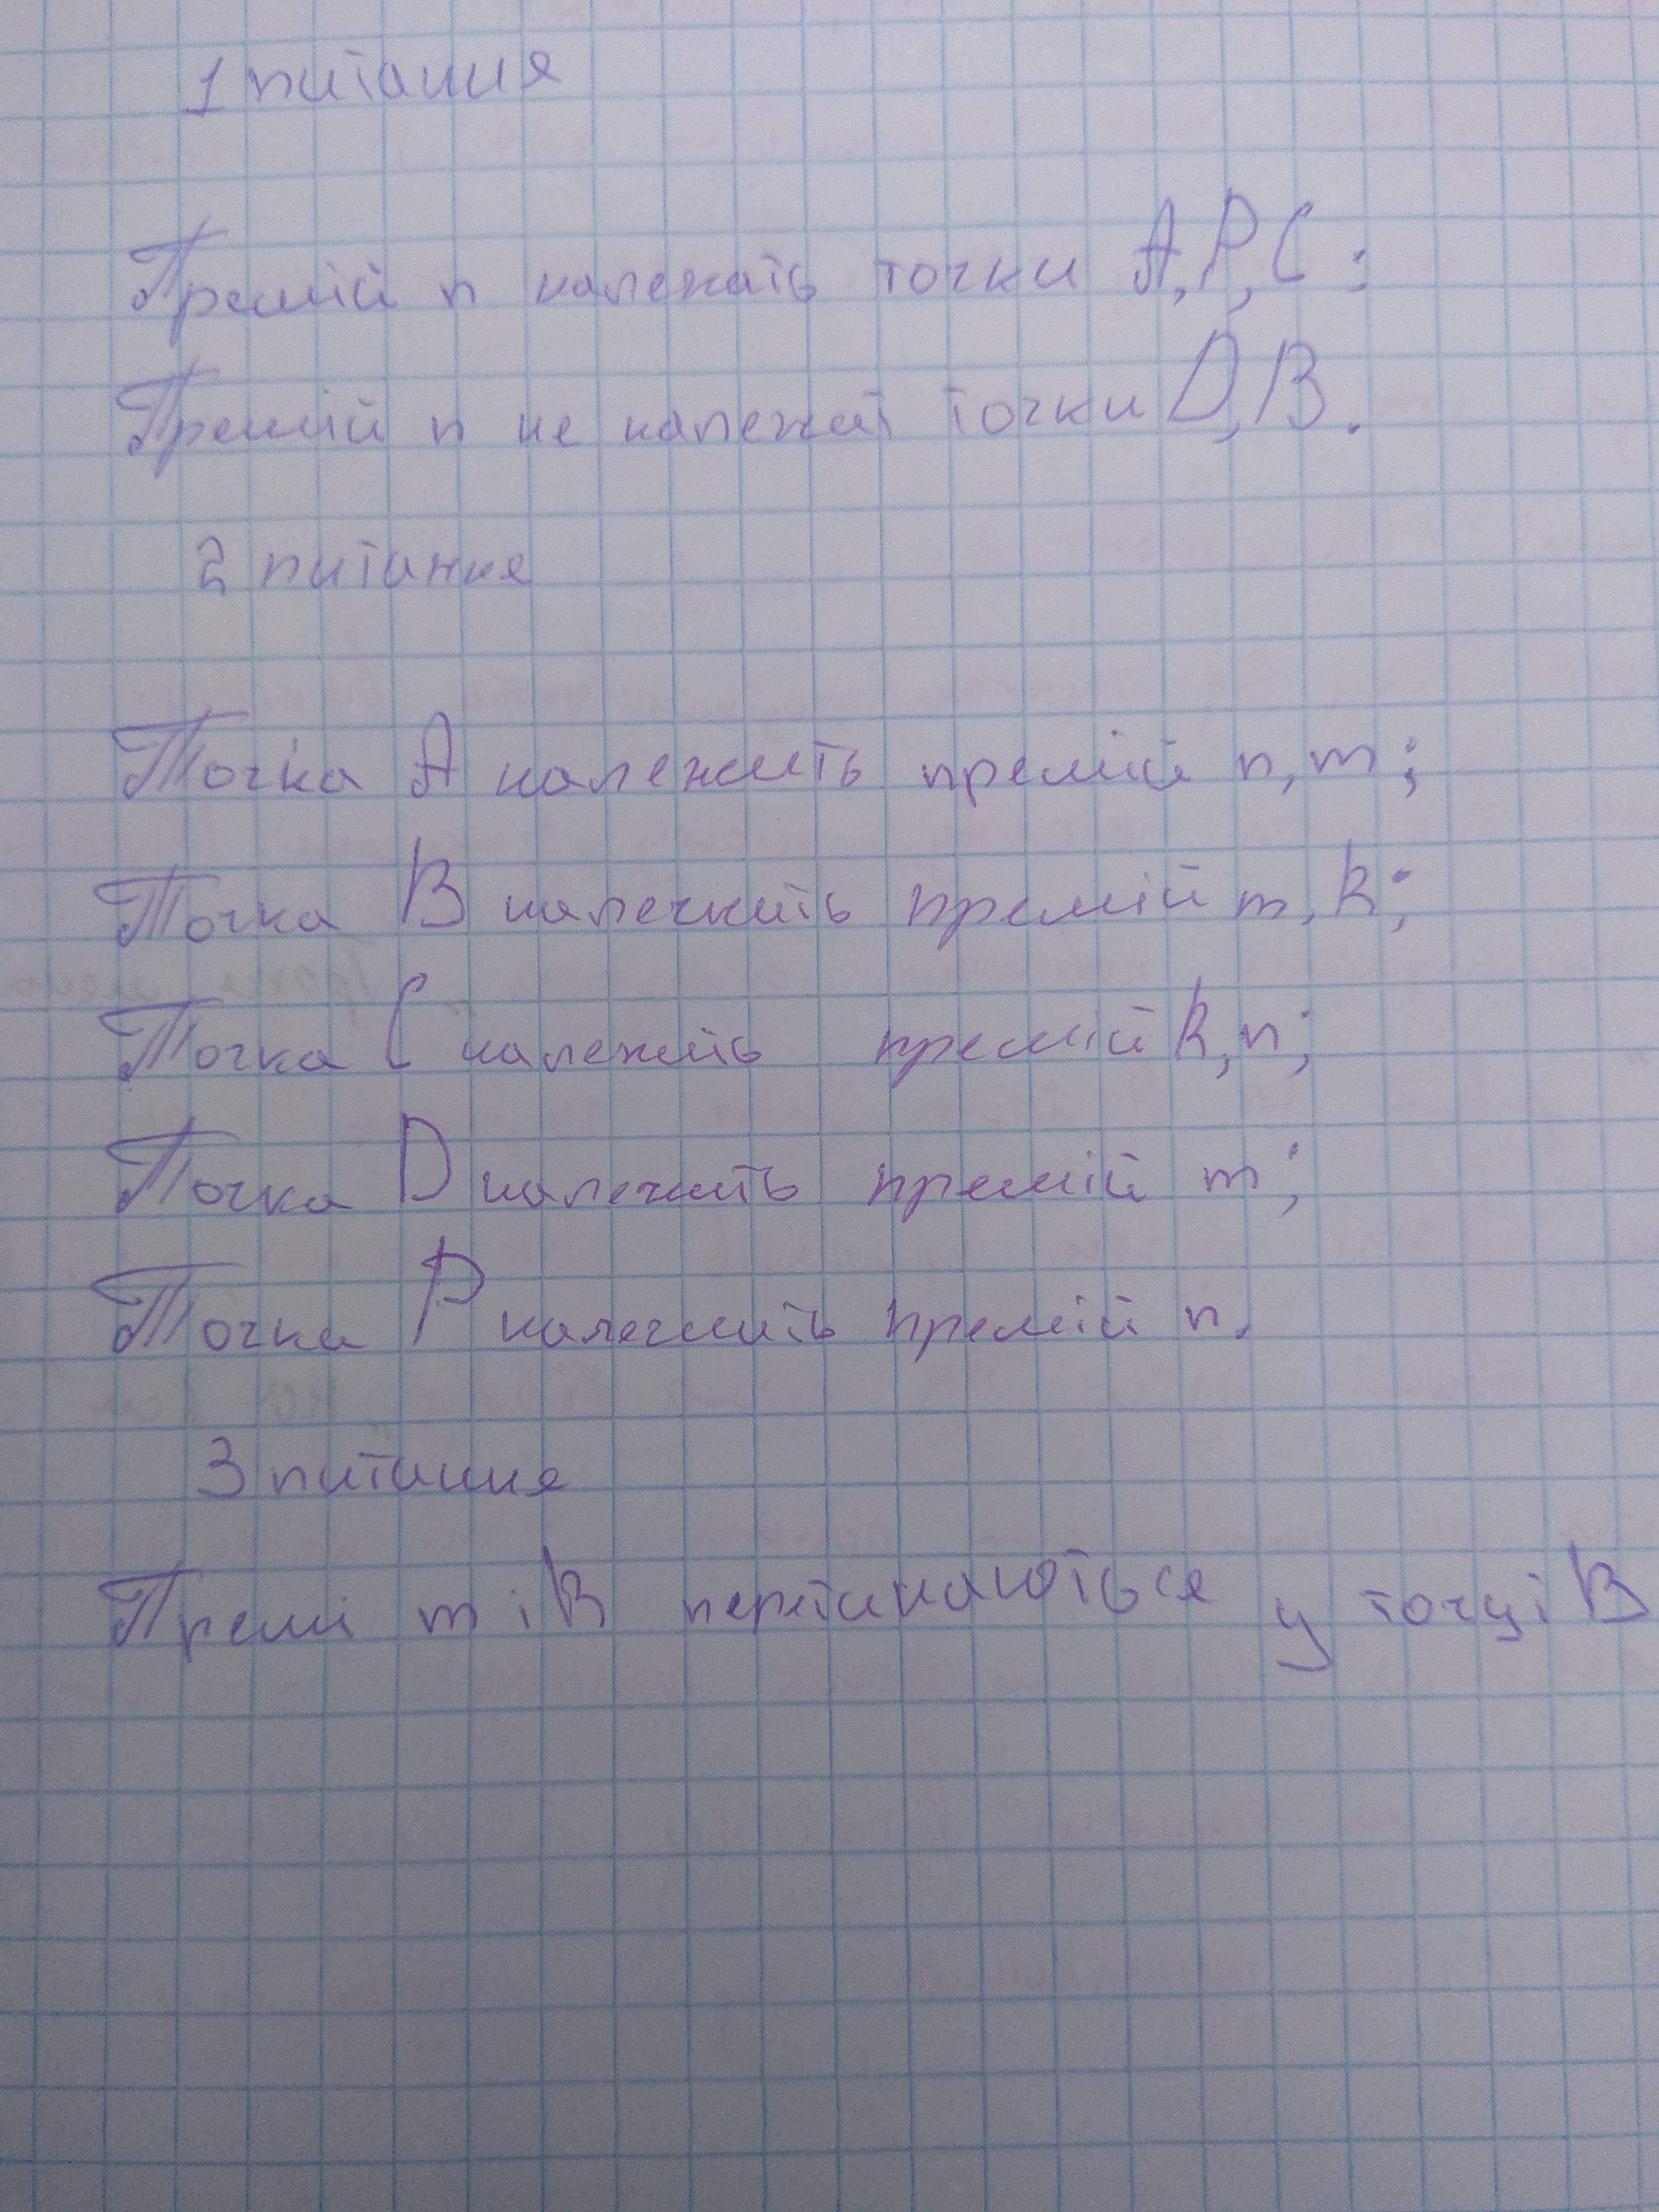 1 питання
Прямій n належать точки A, P, C;
Прямій n не належат точки D, B.
2 питання
Точка A належить прямій n, m;
Точка B належить прямій m, k;
Точка C належить прямій k, n;
Точка D належить прямій m;
Точка P належить прямій n.
3 питання
Прямі m і k перетинаються у точці B